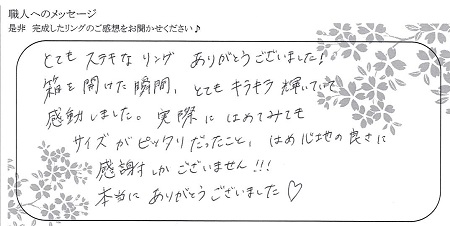 職人へのメッセージ
是非 完成したリングのご感想をお聞かせください♪
とても ステキな リング ありがとうございました!
箱を開けた瞬間、とても キラキラ 輝いていて
感動しました。実際に はめてみても
サイズが ピッタリだったこと、はめ心地の良さに
感謝しか ございません!!!
本当に ありがとうございました♡